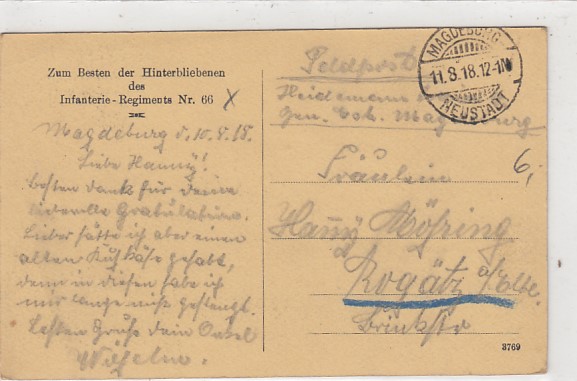 Zum Besten der Hinterbliebenen
des
Infanterie-Regiments Nr. 66
Magdeburg d. 10.8.18.
Liebe Hanny!
Besten Dank für Deine
liebevolle Gratulation.
Lieber hätte ich aber einen
alten Kuhkäse gehabt,
denn in diesen habe ich
mir lange nicht
Besten Gruß Dein Onkel
Wilhelm.
Feldpost
MAGDEBURG
11.8.18.12-1N
NEUSTADT
Heidemann
Gen. Magdeburg
6,
Fräulein
Hanny Möhring
Rogätz a/Elbe.
Brinkstr
3769